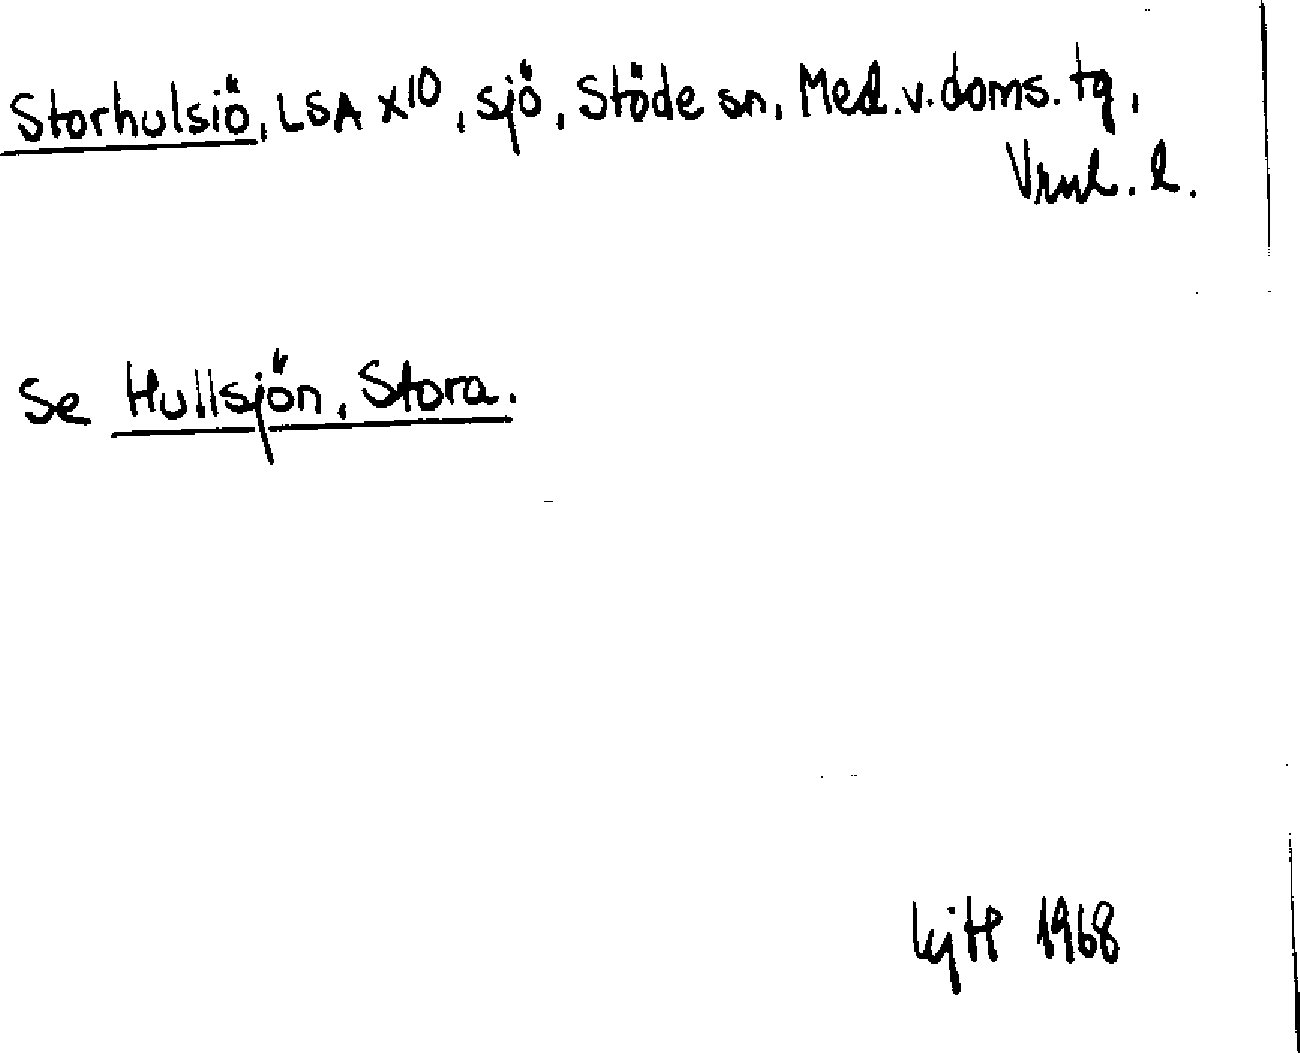 Storhulsiö, LSA X10, sjö, Stöde sn, Med.v.doms.tg,
Vrnl. l.
Se Hullsjön, Stora.
1968